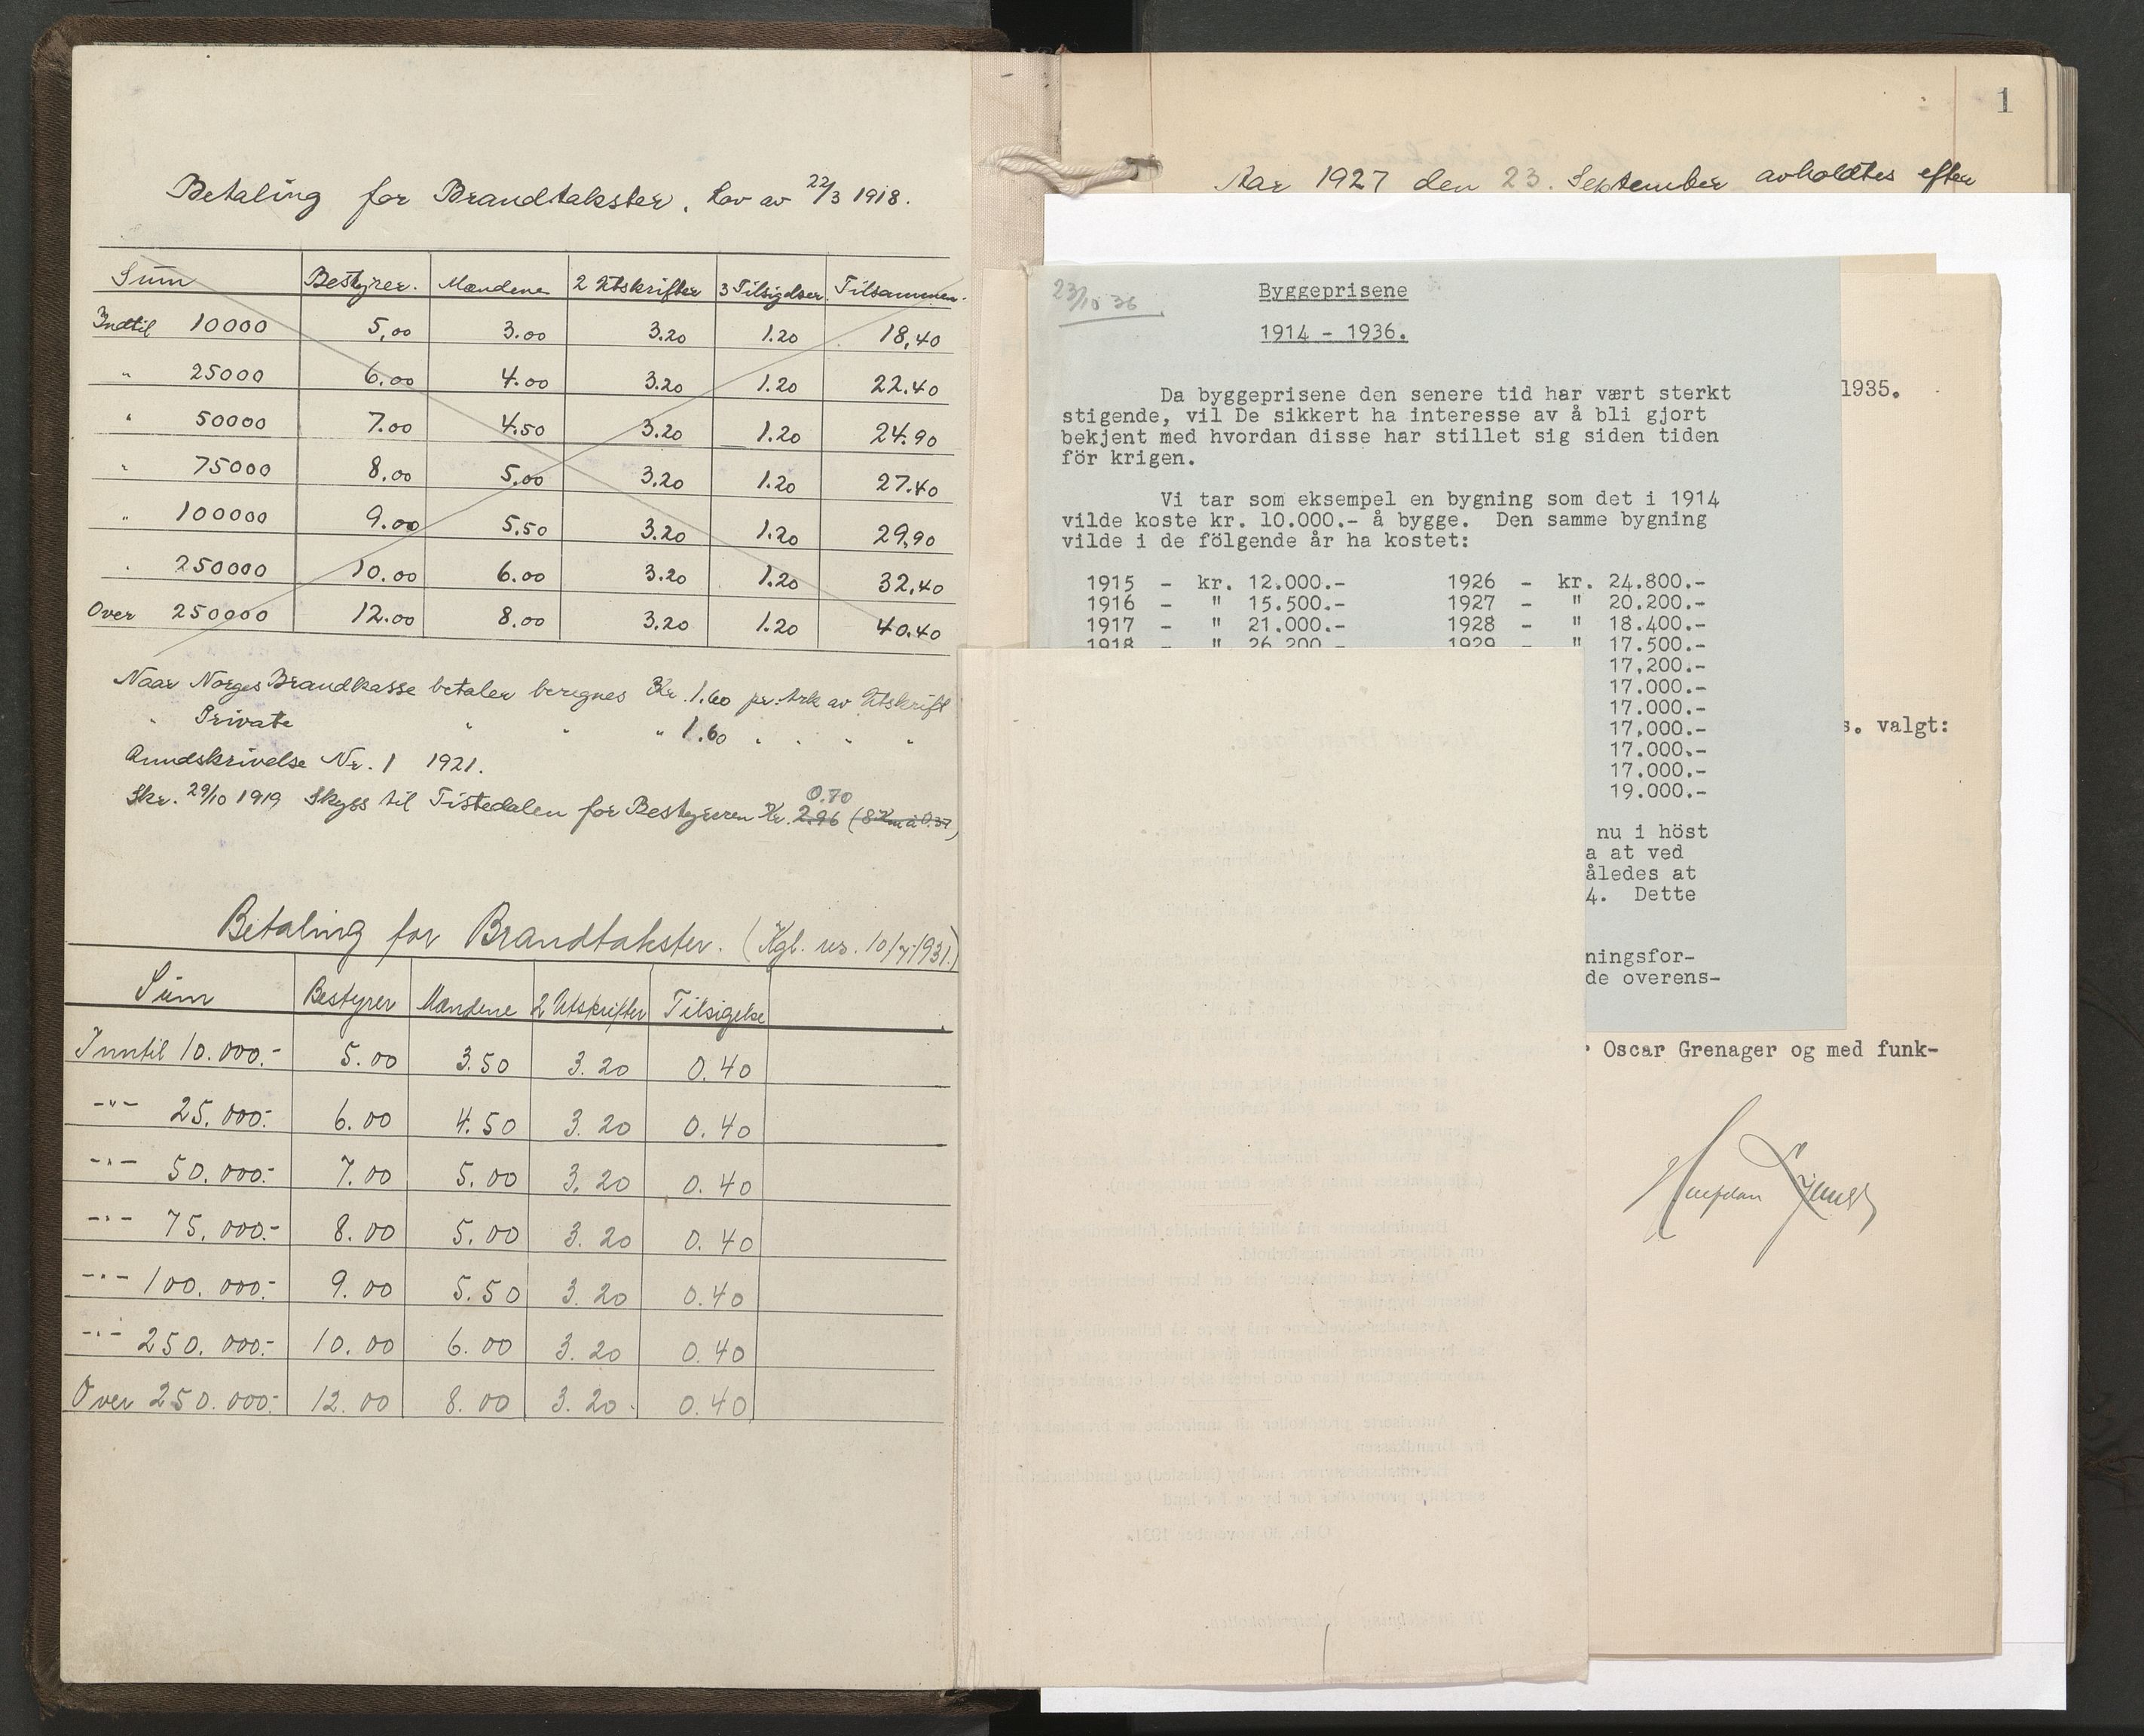 Betaling for Brandtakster. Lov av 22/3 1918.
Sum Bestyrer. Mændene 2 Utskrifter 3 Tilsigelser. Tilsammen.
Indtil 10000 5,00 3.00 3.20 1.20 18,40
" 25000 6.00 4.00 3.20 1.20 22.40
" 50000 7.00 4.50 3.20 1.20 24.90
" 75000 8.00 5.00 3.20 1.20 27.40
" 100000 9.00 5.50 3.20 1.20 29,90
" 250000 10.00 6.00 3.20 1.20 32,40
Over 250000 12.00 8.00 3.20 1.20 40.40
Naar Norges Brandkasse betaler beregnes Kr. 1.60 pr. Ark av Utskrift
" Private " " " 1.60 " " " "
Rundskrivelse Nr. 1 1921.
0.70
Skr. 29/10 1919 Skyss til Tistedalen for Bestyreren Kr. 2.96 (8 Km à 0.37)
Betaling for Brandtakster. (Kgl. res. 10/7 1931.)
Sum Bestyrer Mændene 2 Utskrifter Tilsigelse
Inntil 10.000.- 5.00 3.50 3.20 0.40
-"- 25.000.- 6.00 4.50 3.20 0.40
-"- 50.000.- 7.00 5.00 3.20 0.40
-"- 75.000.- 8.00 5.00 3.20 0.40
-"- 100.000.- 9.00 5.50 3.20 0.40
-"- 250.000.- 10.00 6.00 3.20 0.40
Over 250.000.- 12.00 8.00 3.20 0.40
1
Aar 1927 den 23. September avholdtes efter
23/10 36
Byggeprisene
1914 - 1936.
Da byggeprisene den senere tid har vært sterkt
stigende, vil De sikkert ha interesse av å bli gjort
bekjent med hvordan disse har stillet sig siden tiden
för krigen.
Vi tar som eksempel en bygning som det i 1914
vilde koste kr. 10.000.- å bygge. Den samme bygning
vilde i de fölgende år ha kostet:
1915 - kr. 12.000.- 1926 - kr. 24.800.-
1916 - " 15.500.- 1927 - " 20.200.-
1917 - " 21.000.- 1928 - " 18.400.-
1918 - " 26.200.- 1929 - " 17.500.-
17.200.-
17.000.-
17.000.-
17.000.-
17.000.-
17.000.-
19.000.-
nu i höst
a at ved
åledes at
4. Dette
ningsfor-
de overens-
1935.
s. valgt:
r Oscar Grenager og med funk-